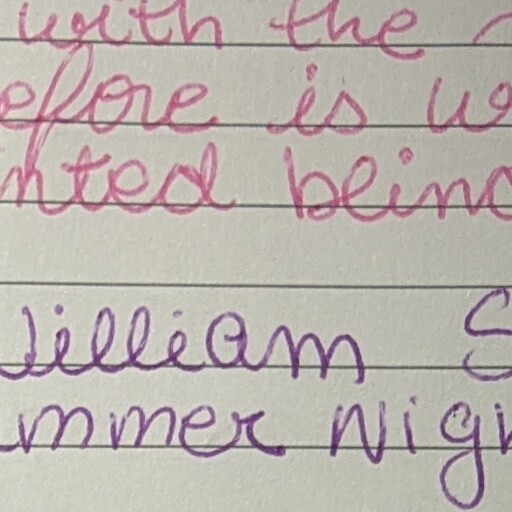 with the
efore is w
nted being
William S
mmer Nigh